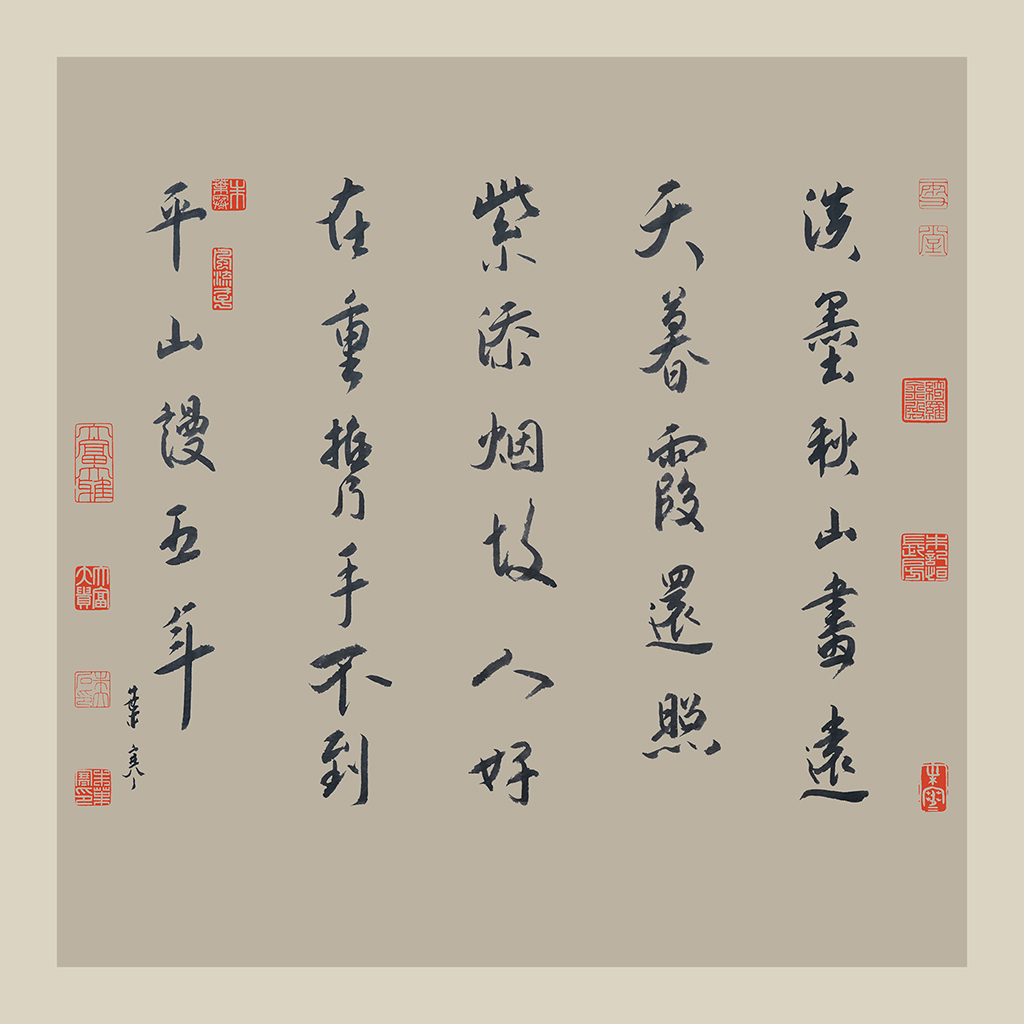 雪堂
淡墨秋山畫遠
天暮霞還照
紫添烟故人好
在重攜手不到
平山謾五年
葉寒
大富大貴